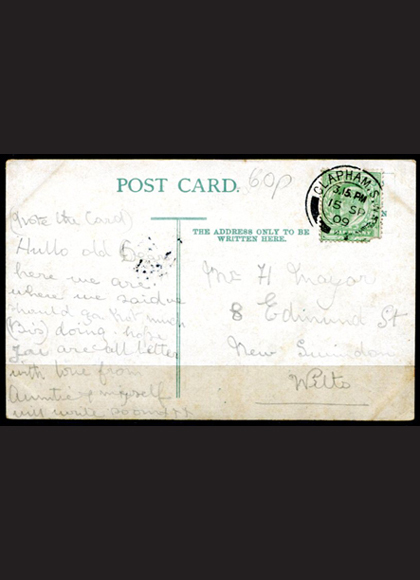 POST CARD.
60p
CLAPHAM S.W.
3.15 PM
15 SP
09
THE ADDRESS ONLY TO BE
WRITTEN HERE.
(Note the Card)
Hullo old
here we are
where we said we
should go Not much
(Biz) doing hope
you are all better
with love from
Auntie & myself
will write soon
Mr H
8 Edmund St
New Swindon
Wilts